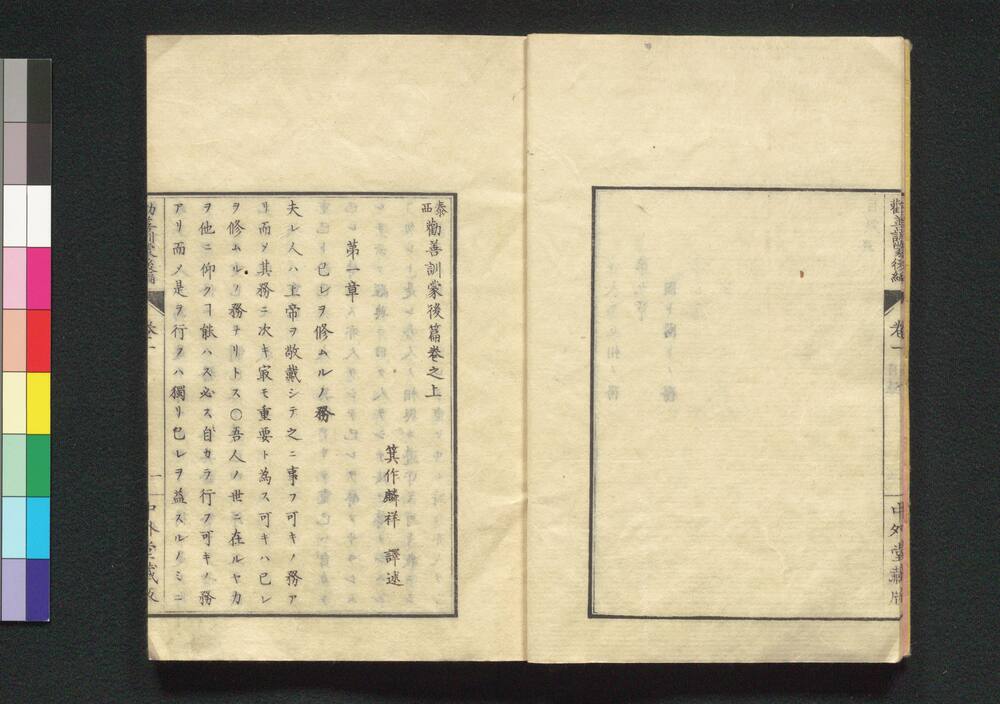 勸善訓蒙後編
卷一
中外堂藏版
泰西勸善訓蒙後篇卷之上
箕作麟祥 譯述
第一章
己レヲ修ムルノ務
夫レ人ハ上帝ヲ敬戴シテ之ニ事フ可キノ務ア
リ而メ其務ニ次キ㝡モ重要ト為ス可キハ己レ
ヲ修ムルノ務ナリトス〇吾人ノ世ニ在ルヤ力
ヲ他ニ仰クヿ能ハス必ス自カラ行フ可キノ務
アリ而メ是ヲ行フハ獨リ己レヲ益スルノミニ